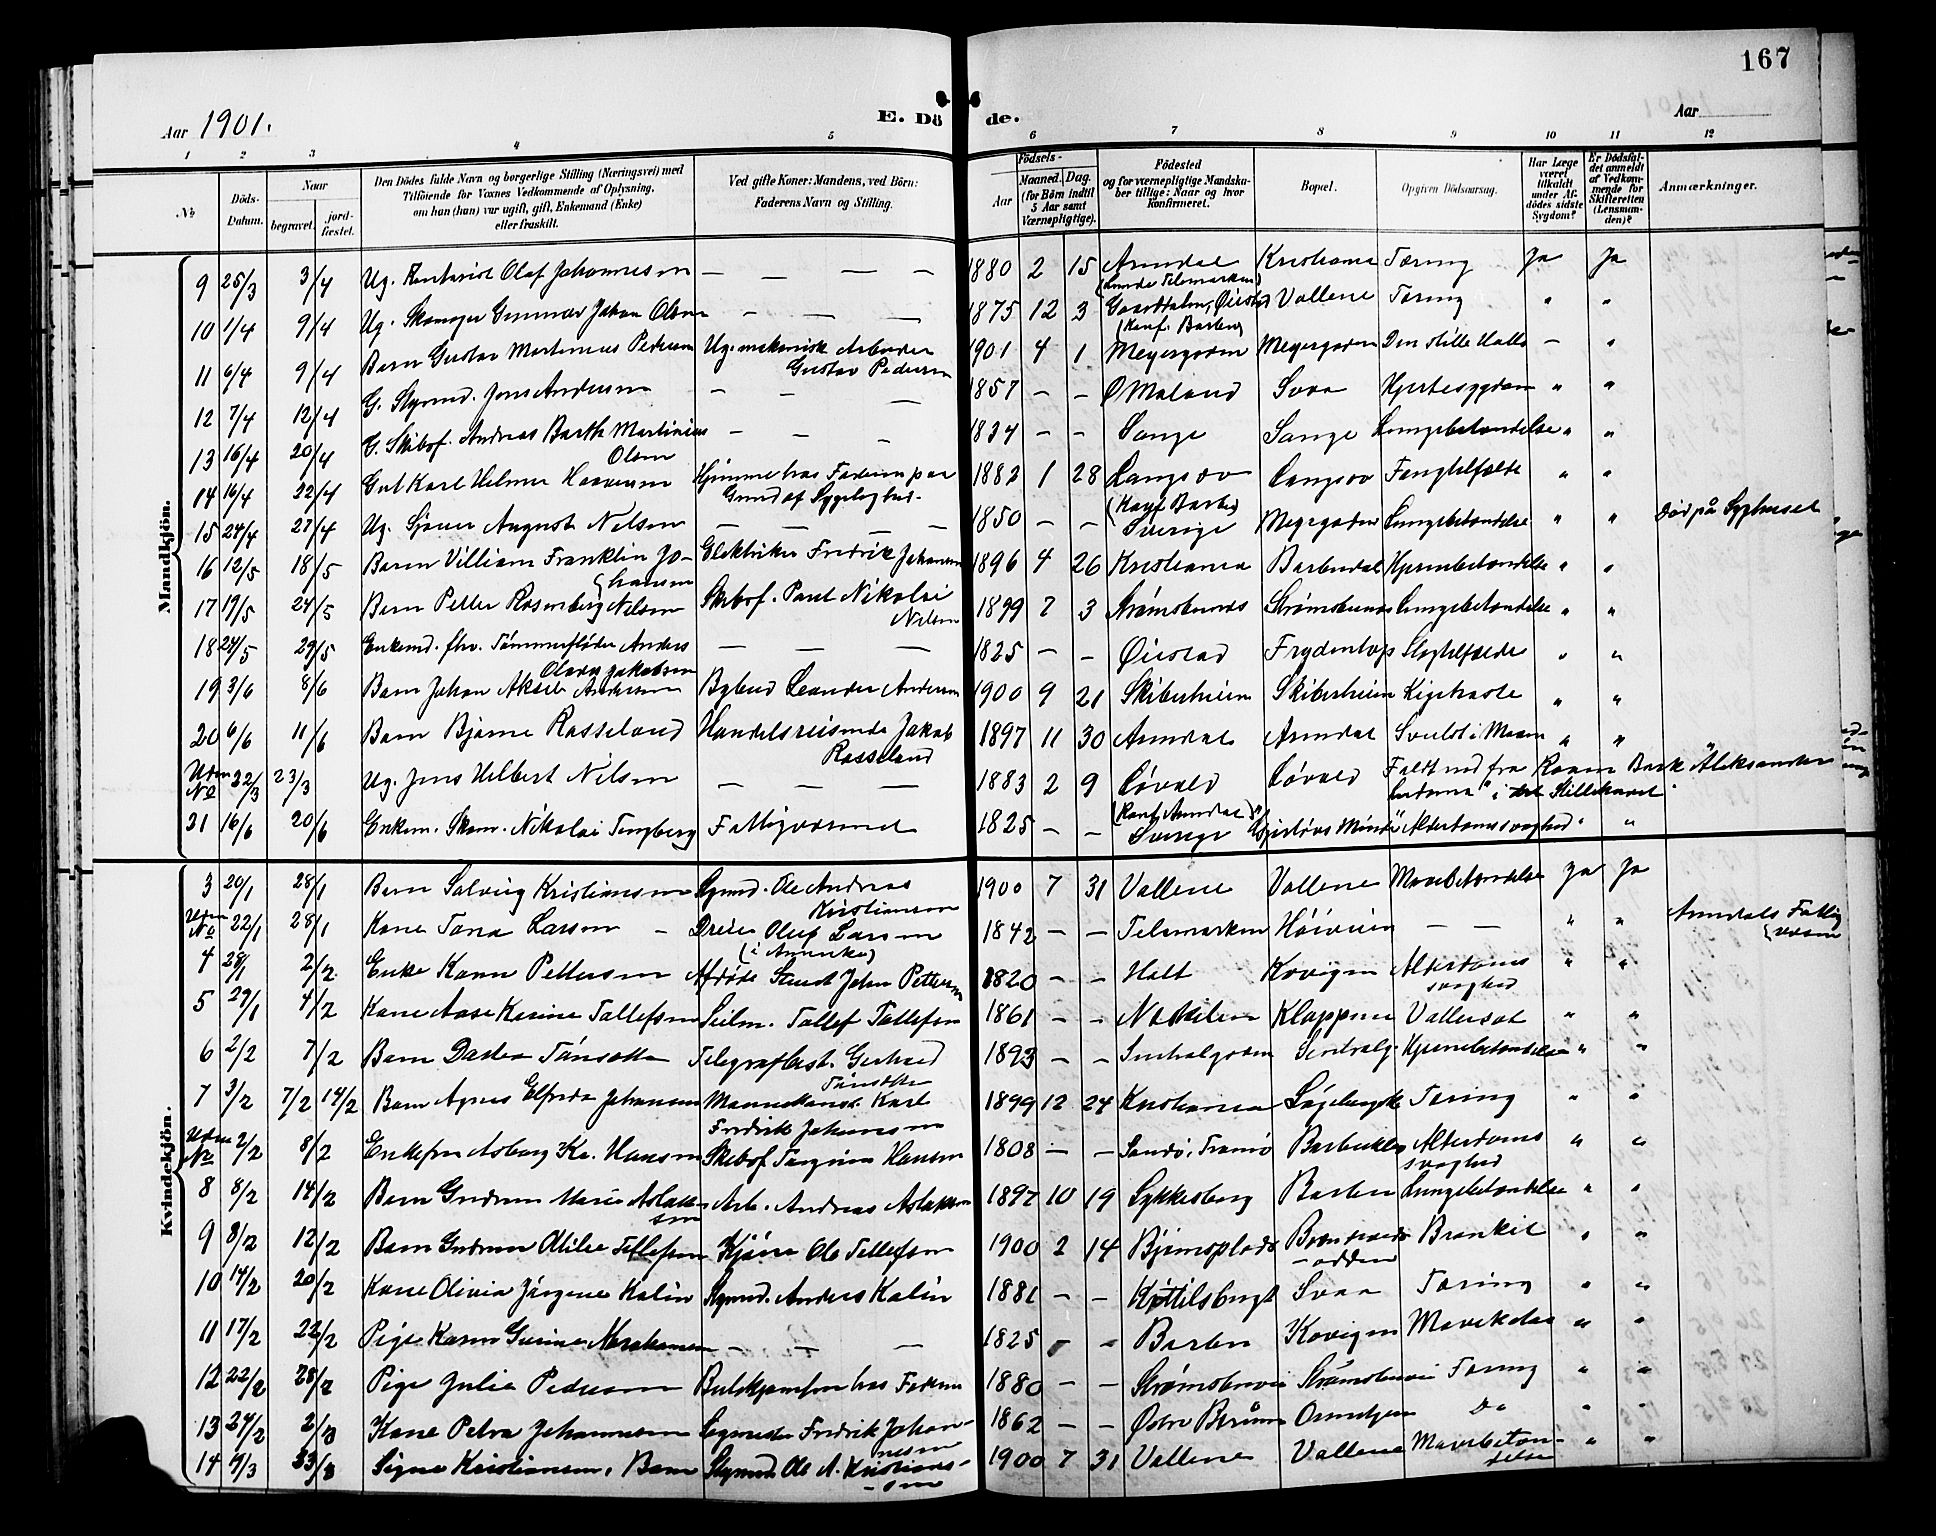 167
Aar 1901.
E. Dö de.
Aar
1 2 3 4 5 6 7 8 9 10 11 12
№
Döds-Datum.
Naar
begravet.
jord-fæstet.
Den Dödes fulde Navn og borgerlige Stilling (Næringsvei) med
Tilföiende for Voxnes Vedkommende af Oplysning,
om han (hun) var ugift, gift, Enkemand (Enke)
eller fraskilt.
Ved gifte Koner: Mandens, ved Börn:
Faderens Navn og Stilling.
Födsels-
Aar
Maaned. Dag.
(for Börn indtil
5 Aar samt
Værnepligtige).
Födested
og for værnepligtige Mandska-
ber tillige: Naar og hvor
konfirmeret.
Bopæl.
Opgiven Dödsaarsag.
Har Læge
været
tilkaldt
under Af-
dödes sidste
Sygdom?
Er Dödsfal-
det anmeldt
af Vedkom-
mende for
Skifteretten
(Lensman-
den)?
Anmærkninger.
Mandkjön.
9 25/3 3/4 Ug. Olaf Johannesen — — — — 1880 2 15 Arendal Kristiania Tæring Ja Ja
10 1/4 9/4 Ug. Skomager Gunnar Johan Olsen — — — 1875 12 3 Vollene Tæring " "
(Konf. Barbu)
11 6/4 9/4 Barn Gustav Martinius Pedersen Ug. mekanisk Arbeider 1901 4 1 Meyergaden Meyergaden Den stille Uke — "
Gustav Pedersen
12 7/4 12/4 G. Styrmd. Jens Andersen — — — 1857 — — Ø Moland Svaa Hjertesygdom " "
13 16/4 20/4 G. Skibsf. Andreas Barth Martinius — — — 1834 — — Sange Sange Lungebetændelse " "
Olsen
14 16/4 22/4 Gut Karl Helmer Hjemme hos Faderen paa 1882 1 28 Langsæv Langsæv " "
Grund af Sygelighed. (Konf. Barbu)
15 24/4 27/4 Ug. Sjøm. August Nilsen — — — 1850 — — Sverige Meyergaden Lungebetændelse " " Død på Sygehuset
16 12/5 18/5 Barn Villiam Franklin Jo- Elektriker Fredrik Johansen 1896 4 26 Kristiania Barbudal Hjernebetændelse " "
hansen
17 19/5 24/5 Barn Petter Rosenberg Nilsen Skibsf. Paul Nikolai 1899 7 3 Strømsbunes Strømsbunes Lungebetændelse " "
Nilsen
18 24/5 29/5 Enkemd. fhv. Tømmerfløder Anders — — — 1825 — — Øiestad Slagtilfælde " "
Jakobsen
19 3/6 8/6 Barn Johan Aksel Andersen Bybud Leander Andersen 1900 9 21 Skibsheien Skibsheien Kighoste " "
20 6/6 11/6 Barn Bjarne Rosseland Handelsreisende Jakob 1897 11 30 Arendal Arendal " "
Rosseland
Uden No 22/3 23/3 Ug. Jens Helbert Nilsen — — — 1883 2 9 Løvold Løvold Faldt ned fra Raaen Bark "Aleksandra
(Konf. Arendal) i Stillehavet.
31 16/6 20/6 Enkem. Skom. Nikolai Tengberg Fattigvæsenet 1825 — — Sverige Minde Alderdomssvaghed " "
Kvindekjön.
3 20/1 28/1 Barn Solveig Kristiansen Styrmd. Ole Andreas 1900 7 31 Vollene Vollene Mavebetændelse Ja Ja
Kristiansen
Uden No 22/1 28/1 Kone Tona Larsen — Dreier Oluf Larsen 1842 — — Telemarken Høiveien — — " " Arendals Fattig
(i Amerika) væsen
4 28/1 2/2 Enke Karen Pettersen Afdøde John Pettersen 1820 — — Holt Kovigen Alderdoms " "
svaghed
5 29/1 4/2 Kone Aase Karine Tallefsen Seilm. Tallef Tallefsen 1861 — — Naskilen Kloppene Vattersot " "
6 2/2 7/2 Barn Dastea Tønsette Telegrafbest. Gerhard 1893 — — Hjernebetændelse " "
Tønsette
7 3/2 7/2 14/2 Barn Agnes Elfrida Johansen Karl 1899 12 24 Kristiania Tæring " "
Fredrik Johansen
Uden No 2/2 8/2 Enkefru Asborg Ka. Hansen Skibsf. Hansen 1808 — — Sandø, Tromø Alderdoms " "
svaghed
8 8/2 14/2 Barn Gudrun Marie Aslak- Arb. Andreas Aslaksen 1897 10 19 Lykkesborg Barbu Lungebetændelse " "
sen
9 8/2 12/2 Barn Gudrun Otilie Tellefsen Ole Tellefsen 1900 2 14 Bjørnsplads Bronkit " "
-odden
10 14/2 20/2 Kone Olivia Jörgine Kalin Styrmd. Anders Kalin 1881 — — Kittilsbugt Svaa Tæring " "
11 17/2 22/2 Pige Karen Abrahamsen — — — 1825 — — Barbu Kovigen " "
12 22/2 28/2 Pige Julie Pedersen hos Faderen 1880 — — Strømsbuvei Strømsbuvei Tæring " "
13 24/2 2/3 Kone Petra Johannesen Fredrik Johan- 1862 — — Do " "
nesen
14 9/3 /3 Signe Kristiansen, Barn Styrmd. Ole A. Kristian- 1900 7 31 Vollene Vollene Mavebetæn- " "
sen delse